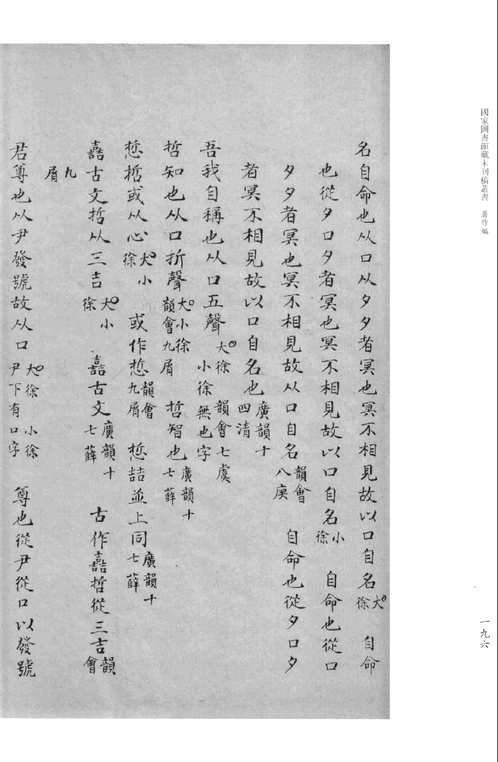 國家圖書館藏未刊稿叢書 著作編
一九六
名自命也从口从夕夕者冥也冥不相見故以口自名大徐 自命
也從夕口夕者冥也冥不相見故以口自名小徐 自命也從口
夕夕者冥也冥不相見故从口自名韻會八庚 自命也從夕口夕
者冥不相見故以口自名也廣韻十四清
吾我自稱也从口五聲大徐小徐無也字 韻會七虞
哲知也从口折聲大徐小徐韻會九屑 哲智也廣韻十七薛
悊哲或从心大徐小徐 或作悊韻會九屑 悊喆並上同廣韻十七薛
嚞古文哲从三吉大徐小徐 嚞古文廣韻十七薛 古作嚞哲從三吉韻會
九屑
君尊也从尹發號故从口大徐小徐尹下有口字 尊也從尹從口以發號